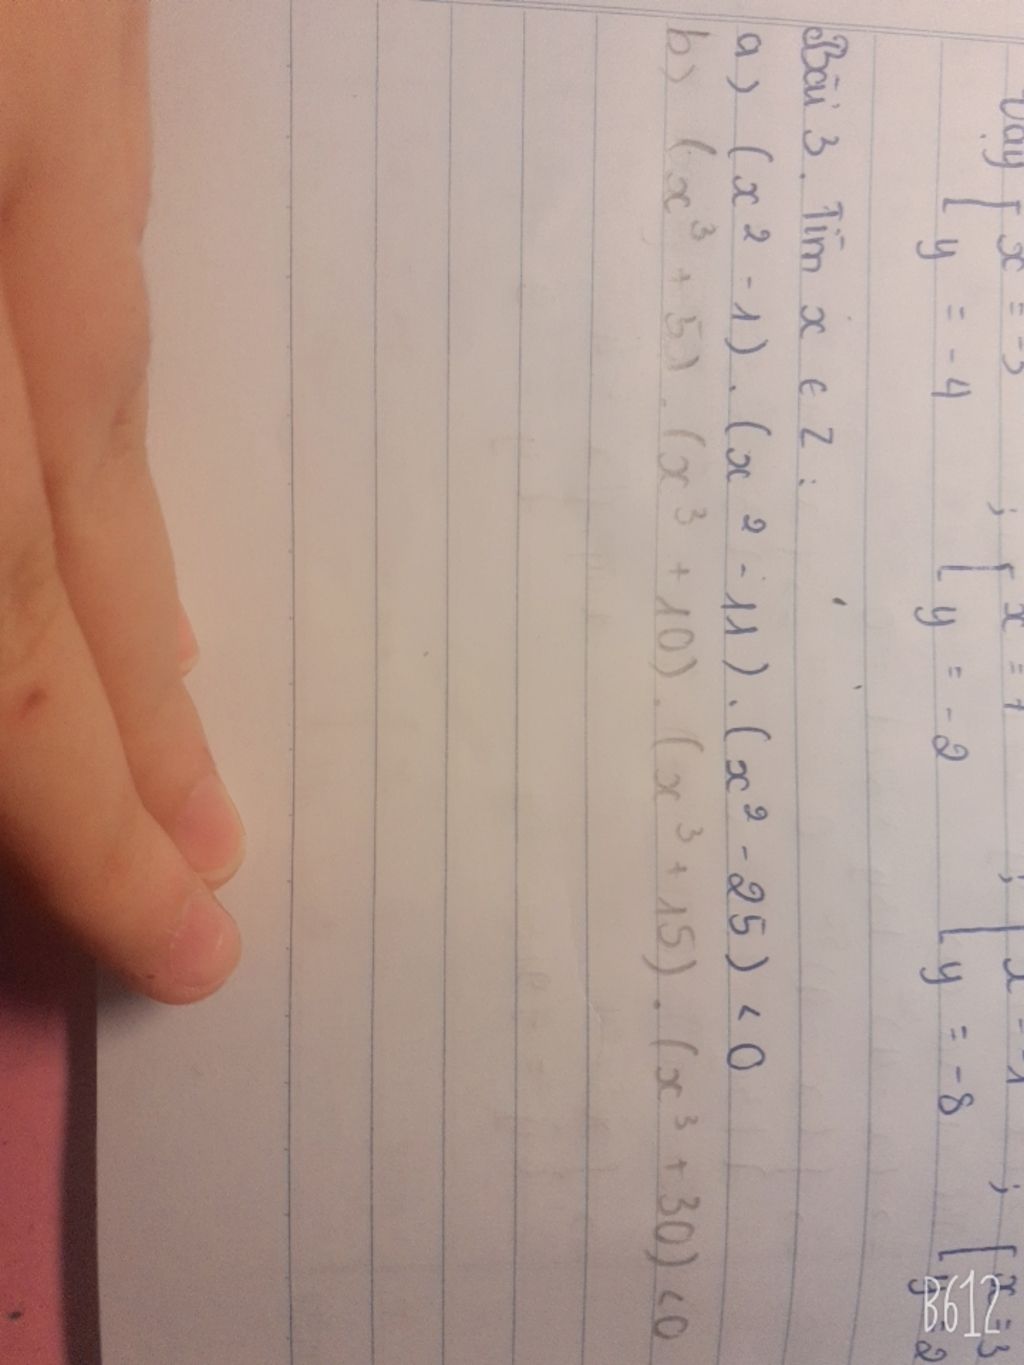 Vậy [ x = -5 ; [ x = 7 ; [ x = -1 ; [ x = 3
[ y = -4 [ y = -2 [ y = -8 [ y = 2
Bài 3. Tìm x ∈ Z :
a) (x² - 1) . (x² - 11) . (x² - 25) < 0
b) (x³ + 5) . (x³ + 10) . (x³ + 15) . (x³ + 30) < 0
B612